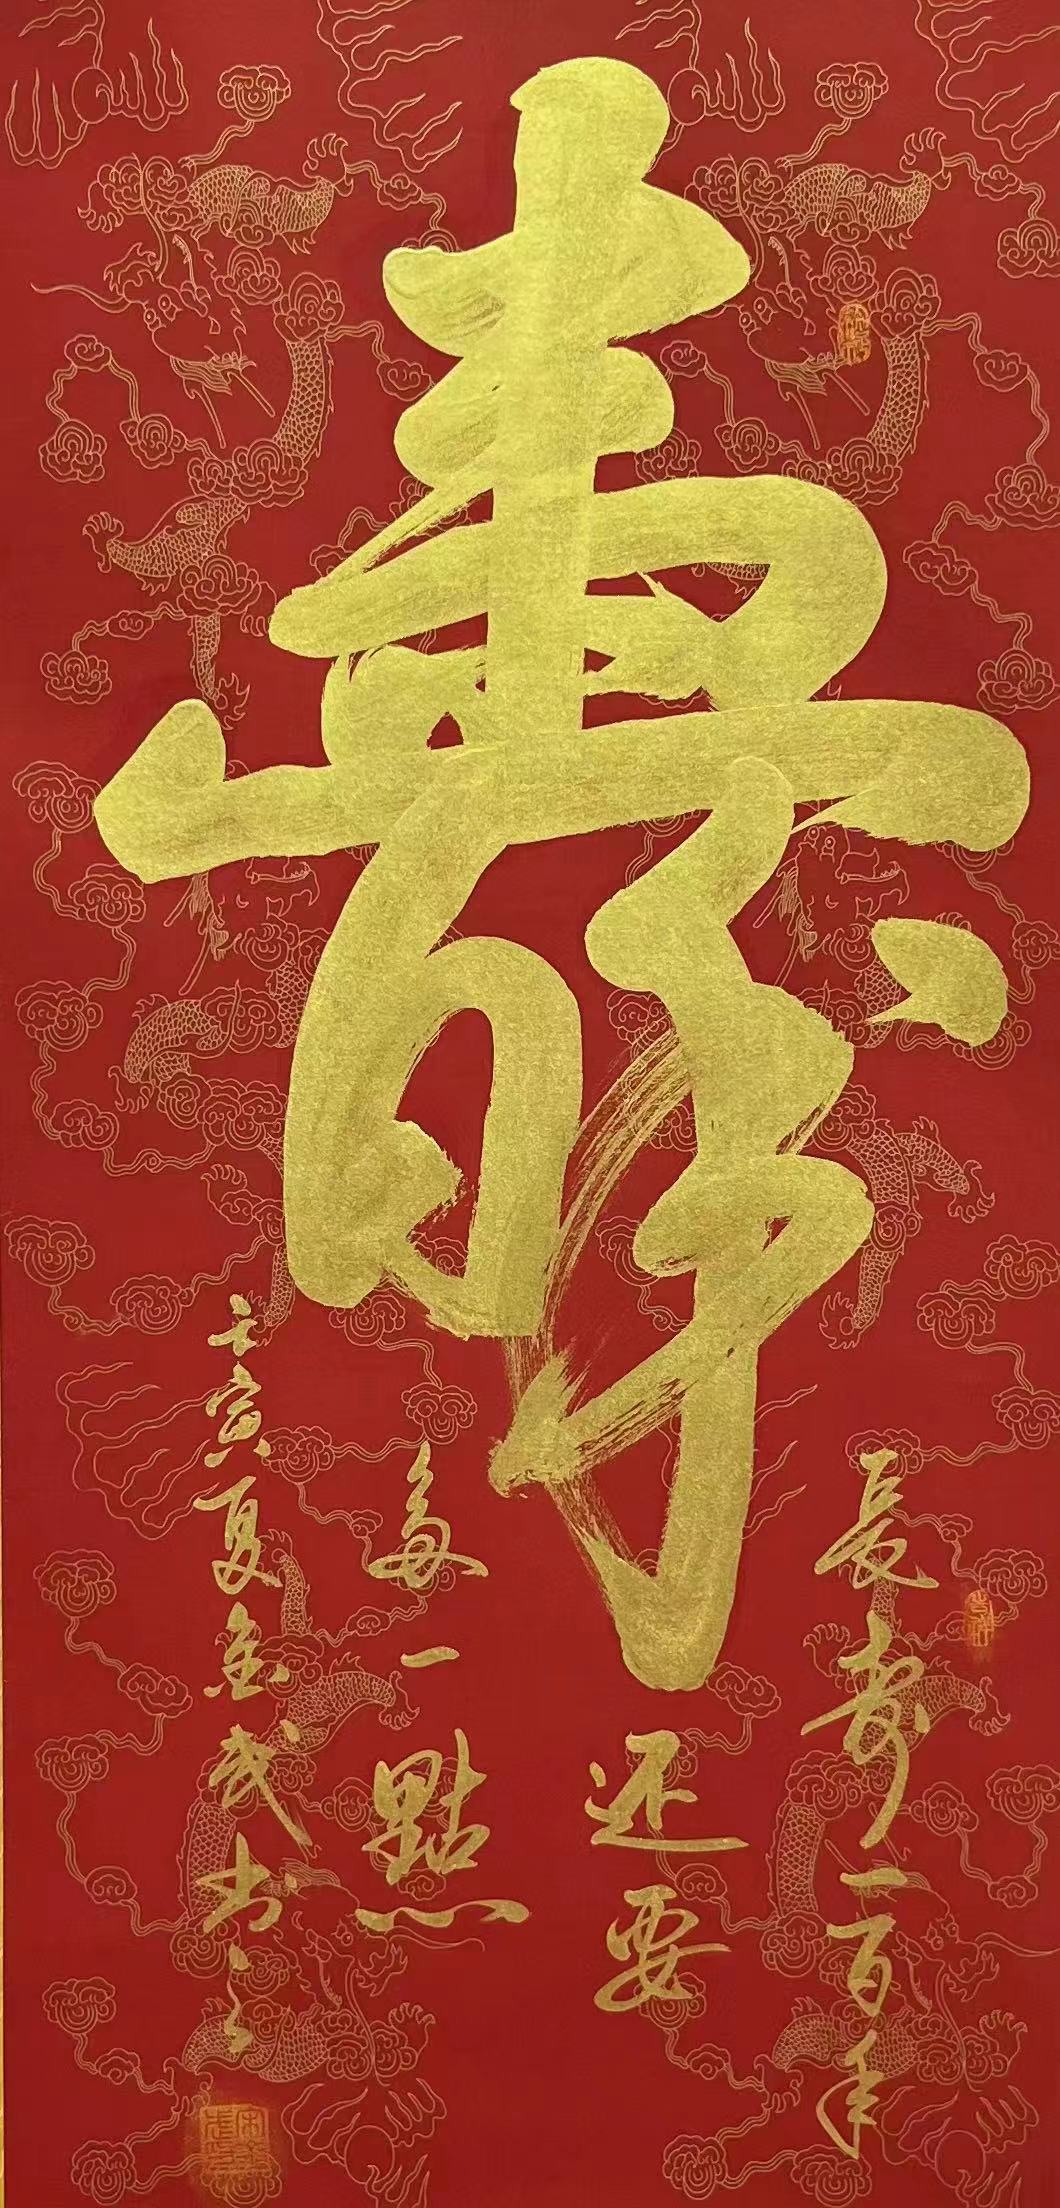 壽
長壽一百年
还要
多一點
壬寅夏金武书之